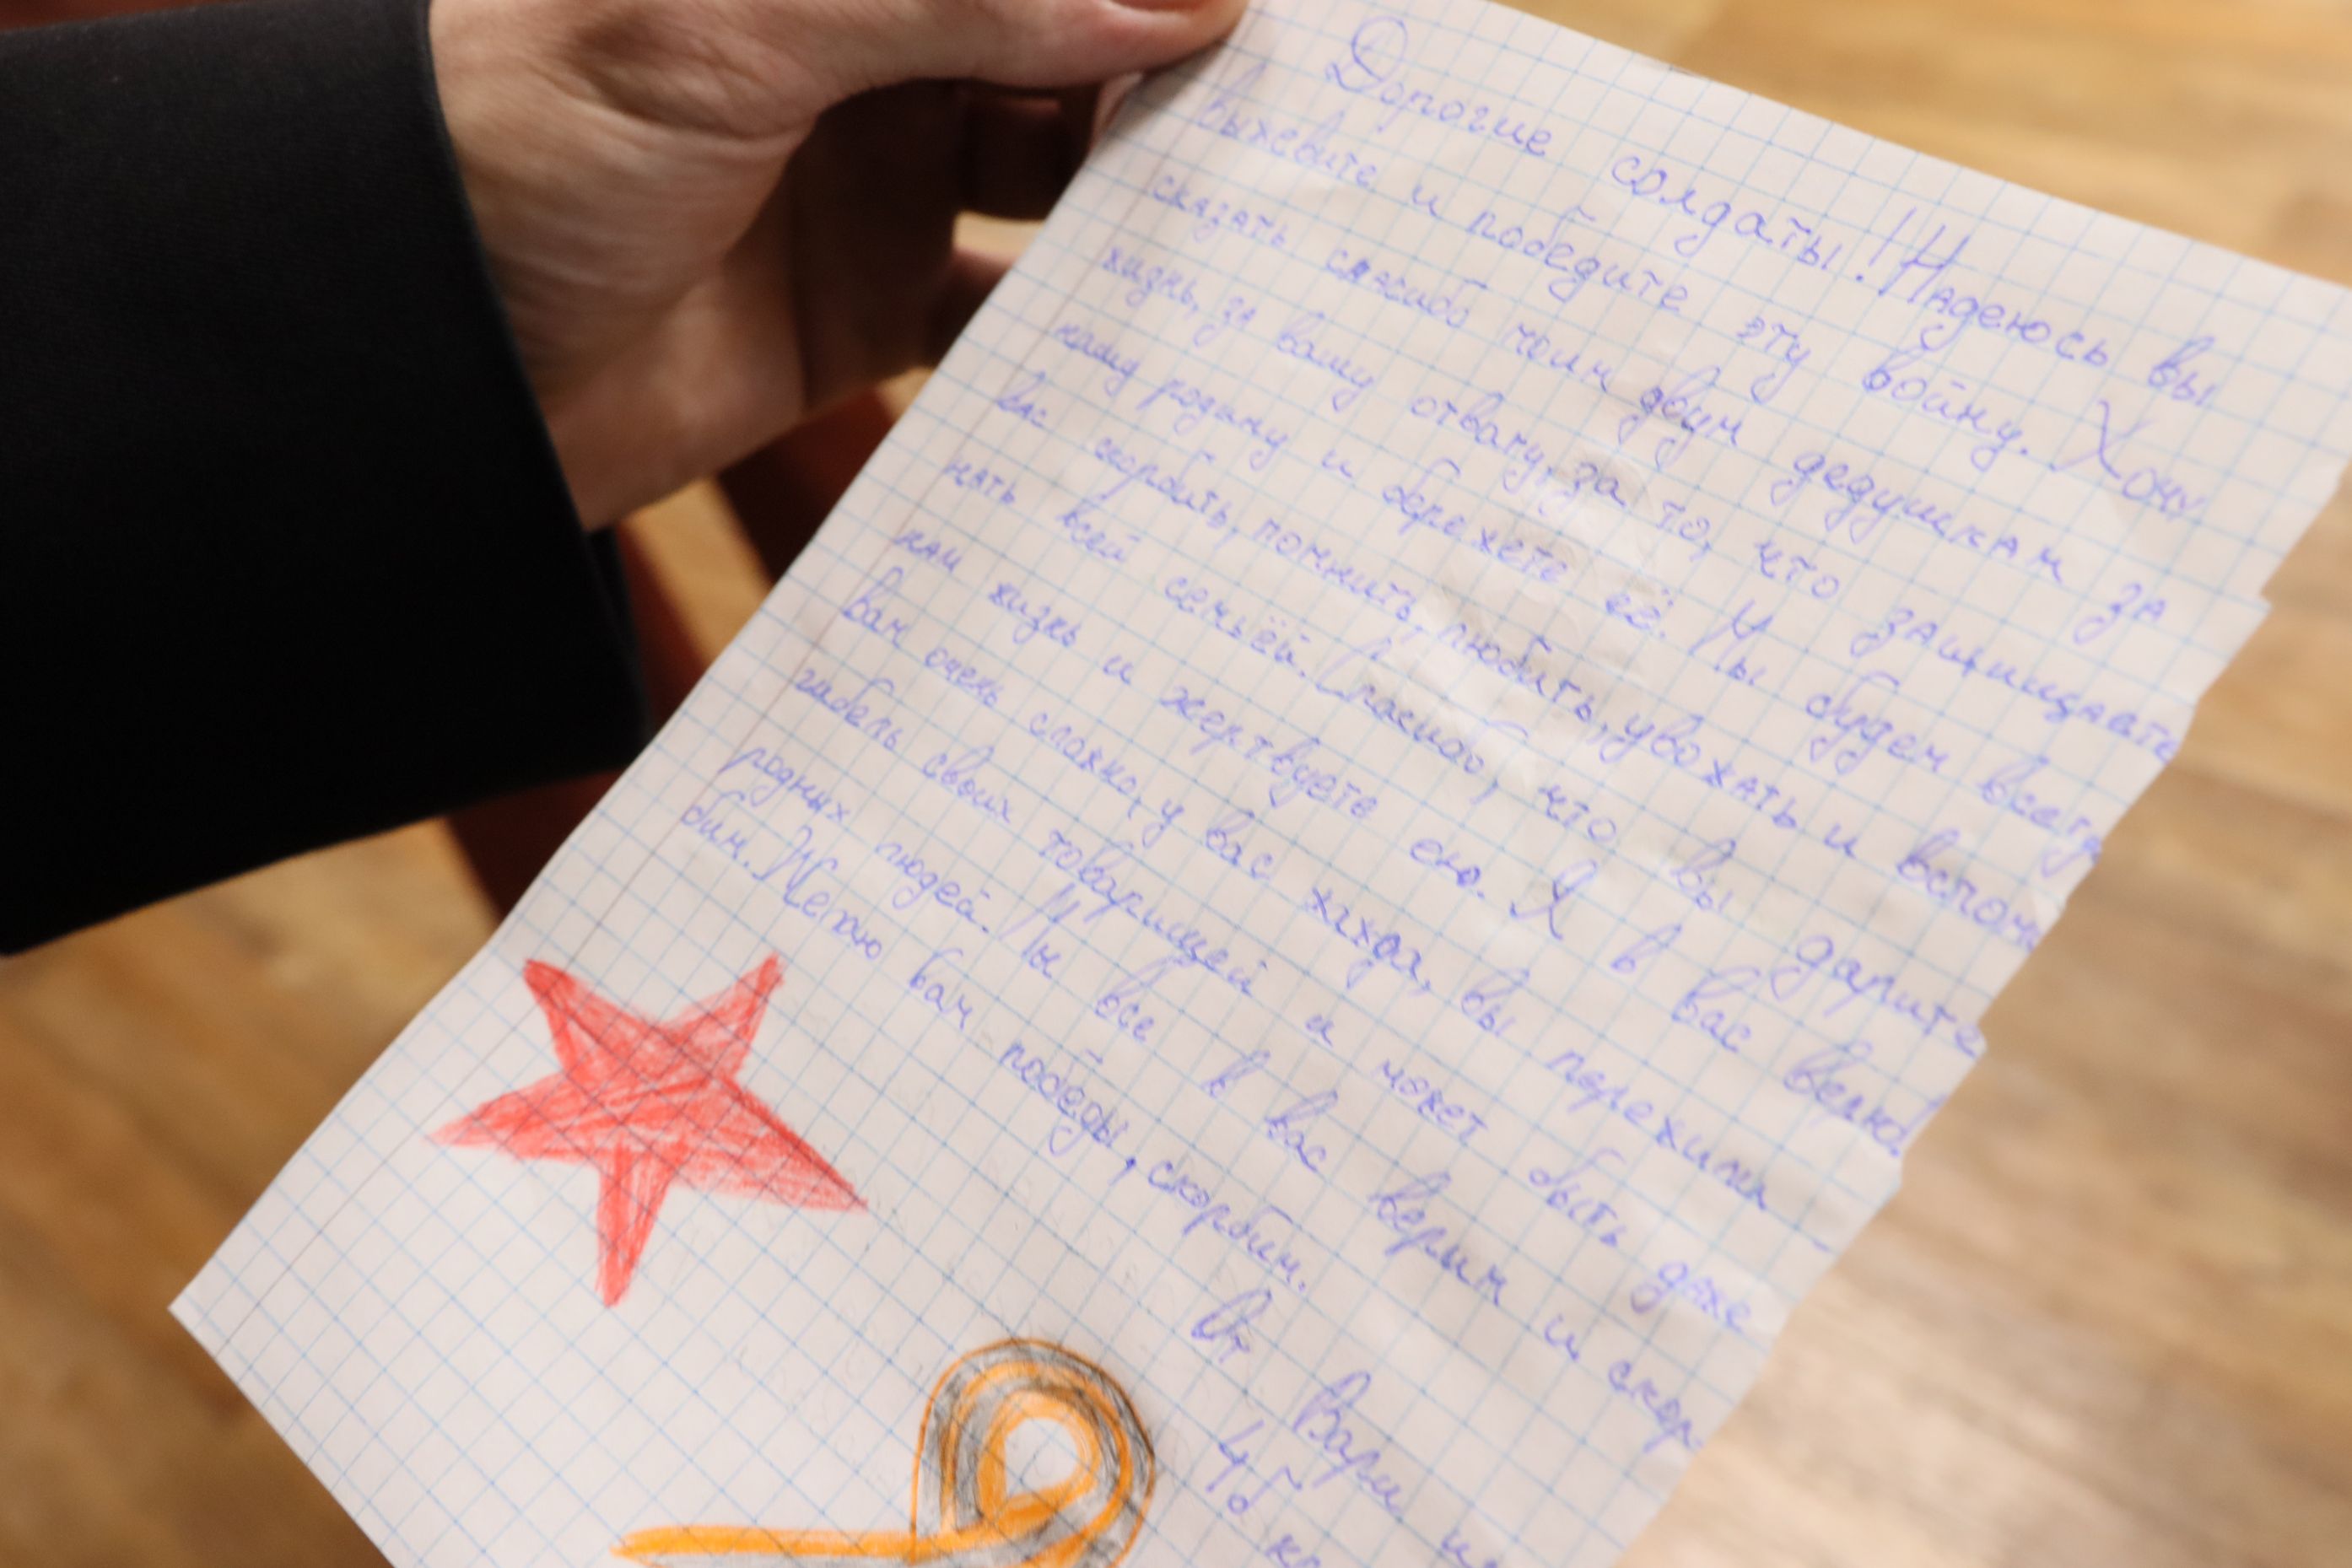 Дорогие солдаты! Надеюсь вы
выжевите и победите эту войну. Хочу
сказать спасибо моим двум дедушкам за
жизнь, за вашу отвагу, за то, что защищаете
нашу родину и бережёте её. Мы будем всегда
вас скорбить, помнить, любить, увожать и вспоми
нать всей семьёй. Спасибо, что вы дарите
нам жизнь и жертвуете ею. Я в вас верю!
Вам очень сложно, у вас жажда, вы пережили
гибель своих товарищей и может быть даже
родных людей. Мы все в вас верим и скор
бим. Желаю вам победы, скорбим.
От Вари
4б